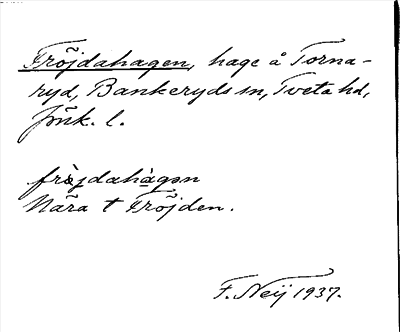 Fröjdahagen, hage å Torna-
ryd, Bankeryds sn, Tveta hd,
Jönk. l.
fröjdahàgən
Nära t Fröjden.
F. Neij 1937.